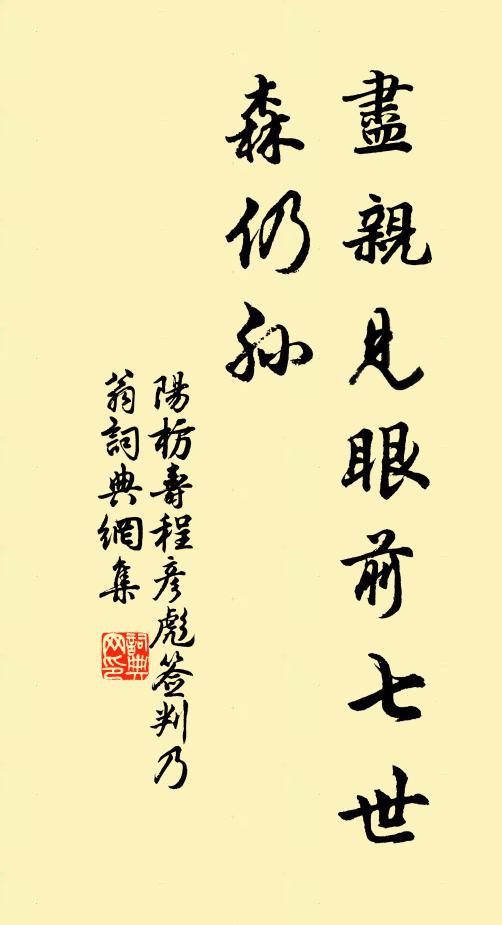 盡親見眼前七世
森仍孫
陽枋壽程彥彪簽判乃
翁詞典網集
詞典
网印